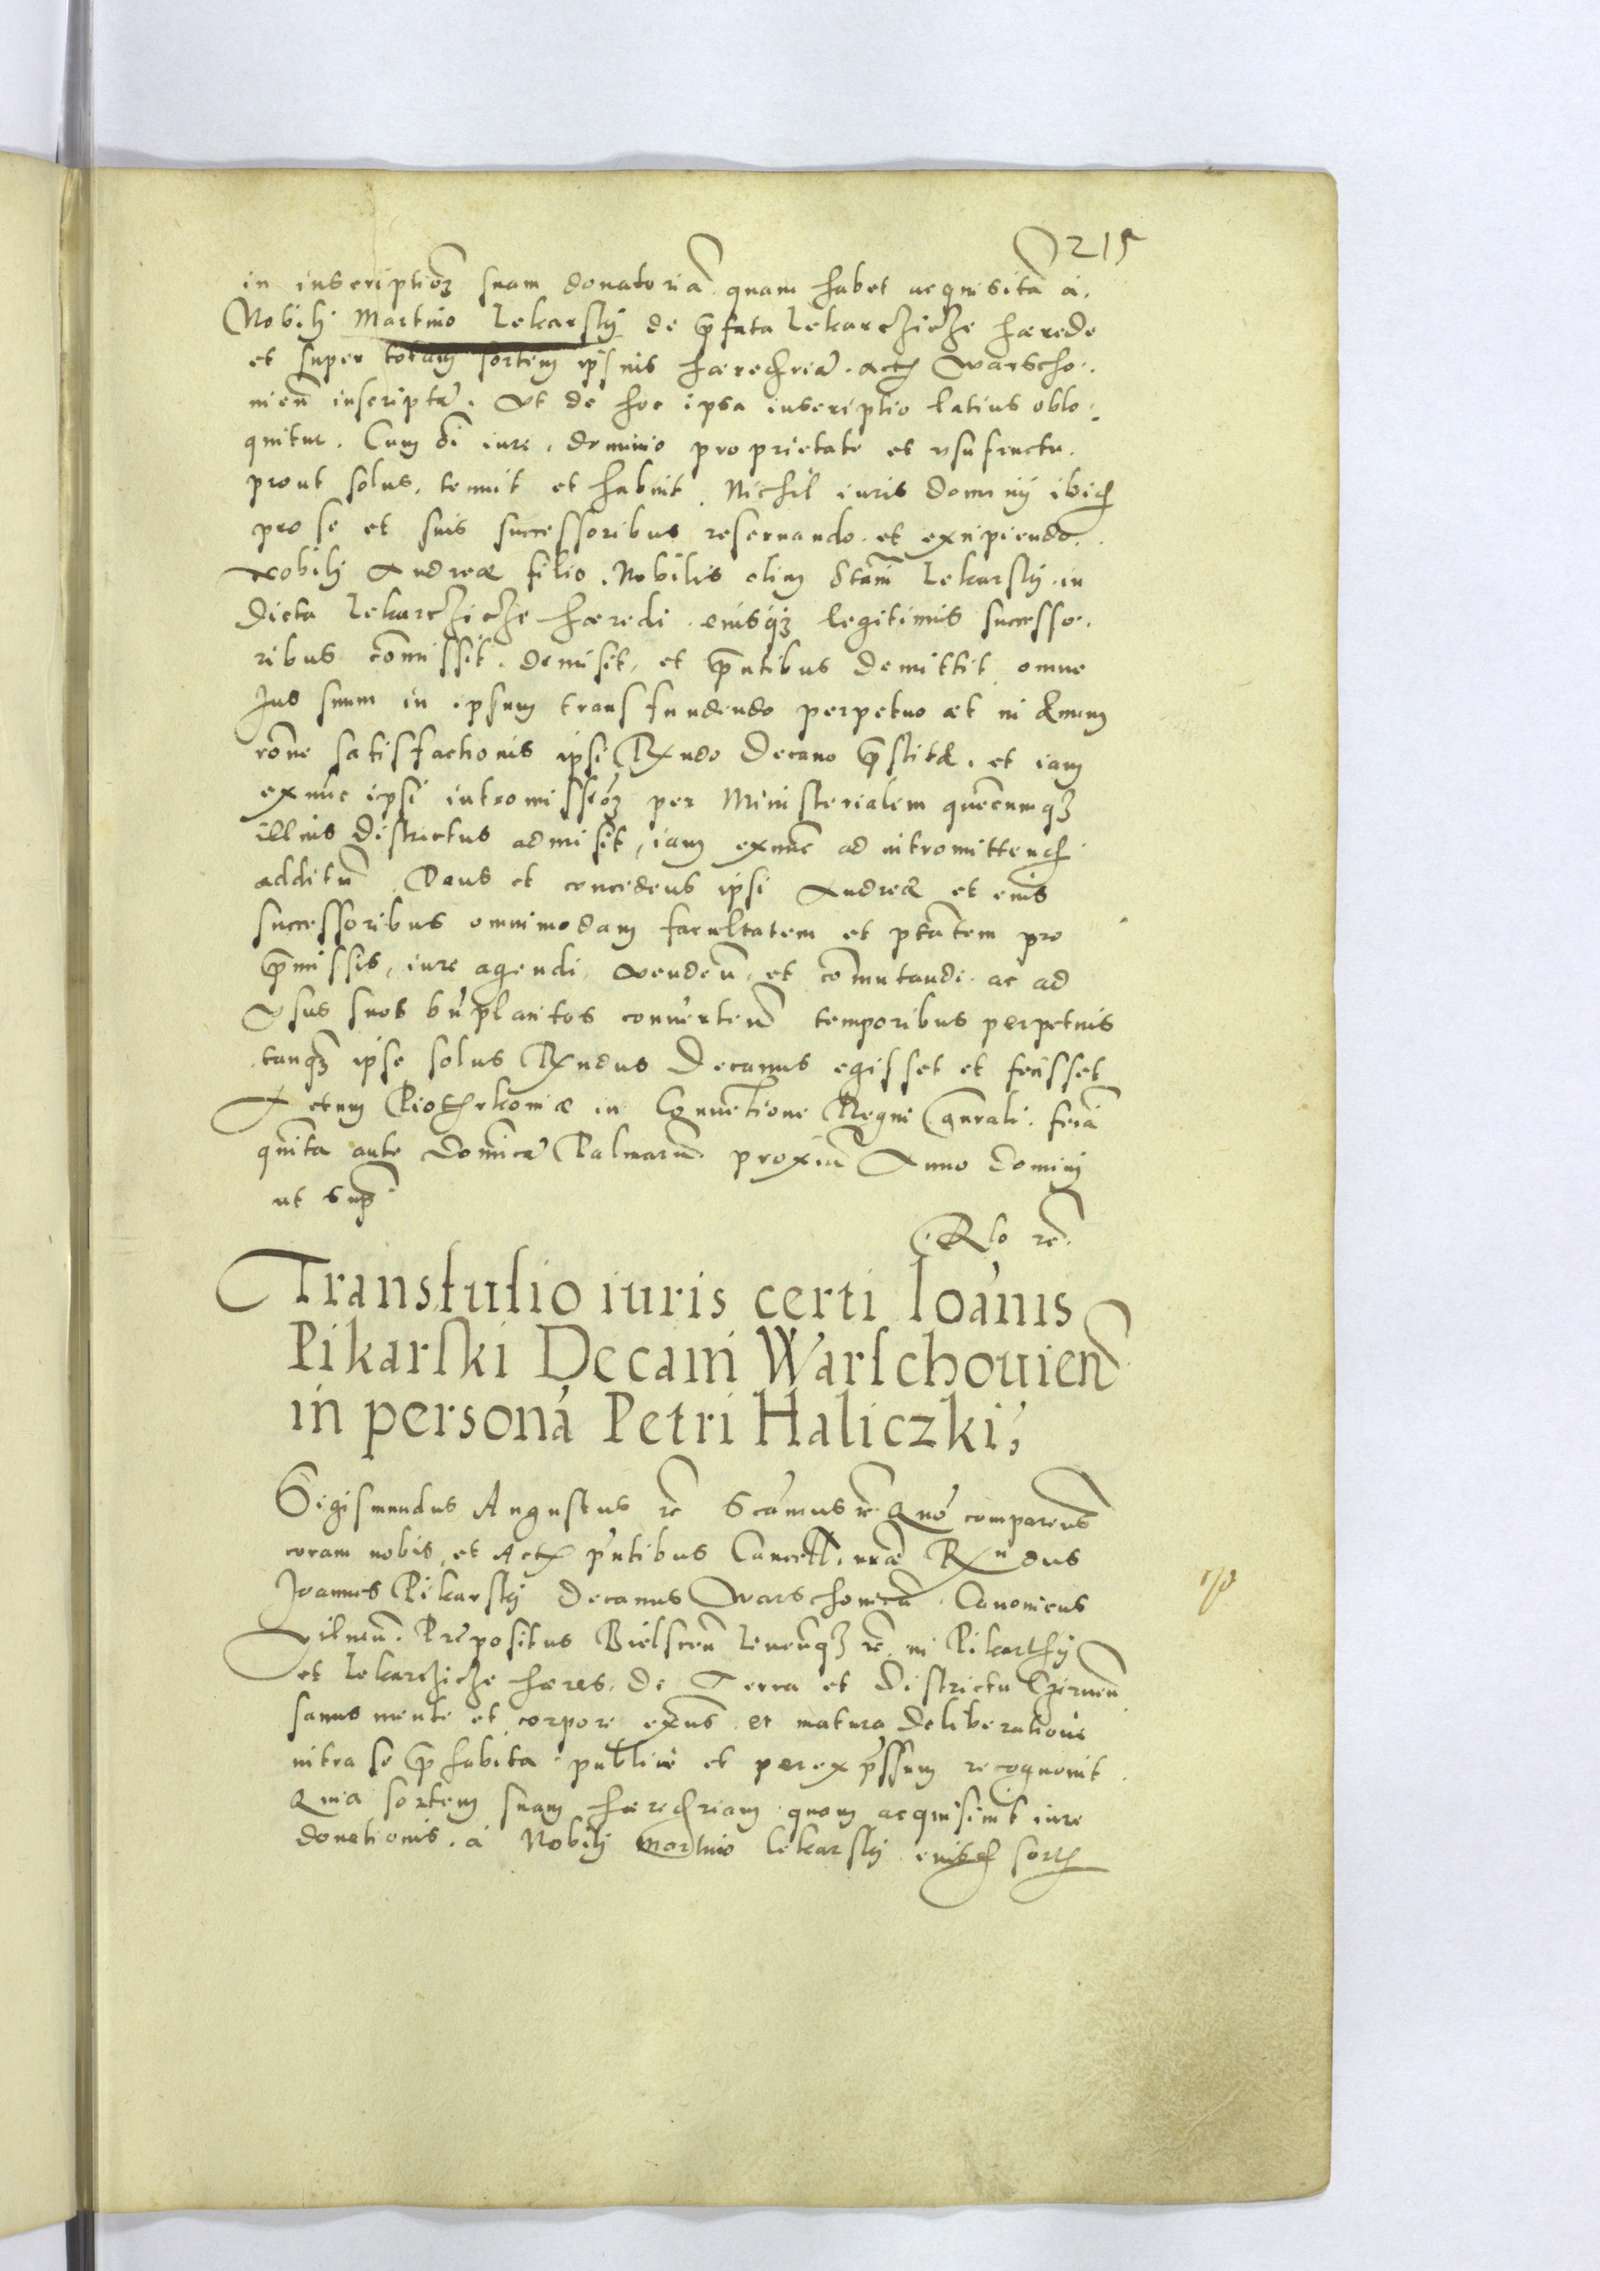 215
in inscriptioēȝ suam donatoriā quam habet acquisitā à
Nobilj Martino Lekarskÿ de p̄fata Lekarczicze hærede
et super totam sortem ipsius hæred̄riā. Actȝ Warscho-
uieñ inscriptā. Vt de hoc ipsa inscriptio latius oblo-
quitur. Cum oī iure, dominio proprietate et vsufructu
prout solus, tenuit et habuit. Nichil iuris dominÿ ibid̄
pro se et suis successoribus reseruando et excipiendo.
Nobilj Andreæ filio. Nobilis olim Stanī Lekarskÿ in
Dicta Lekarczicze hæredi eiusqȝ legitimis successo-
ribus com̄issit. demisit, et p̄ntibus demittit omne
Jus suum in ipsum transfundendo perpetuo æt in æuum
rōne satisfactionis ipsi Rx̄ndo Decano p̄stitæ. et iam
exnūc ipsi intromissioēȝ per Ministerialem quēcumqȝ
illius districtus admisit, iam exnūc ad intromittend̄
additū. Dans et concedens ipsi Andreæ et eius
successoribus omnimodam facultatem et ptātem pro
p̄missis, iure agendi vendeñ et com̄mutandi ac ad
Vsus suos bn̄placitos conuerteñ temporibus perpetuis
tanqȝ ipse solus Rx̄ndus Decanus egisset et fecisset
Actum Piotrkoniæ in Conuētione Regni gn̄rali. feriā
quinta ante Dominicā Palmarū proximā Anno Dominj
ut sup̄
Rlo rē.
Transfusio iuris certi Ioānis
Pikarski Decani Warschouieñ
in personā Petri Haliczki,
Sigismundus Augustus rē Scāmus rē Quō comparens
coram nobis, et Actȝ p̄ntibus Cancell. nr̄æ Rx̄ndus
Joannes Pikarskÿ Decanus Warschouieñ. Canonicus
Vilneñ. Prepositus Bielsceñ Leueñqȝ rē in Pikarthÿ
et Lekarczicze hæres. de Terra et Districtu Czerneñ
sanus mente et corpore exn̄s et matura deliberatione
intra se p̄habita publicē et per exp̄ssum recognouit.
Quia sortem suam hæred̄riam quam acquisiuit iure
donationis. à Nobilj Martino Lekarskÿ eiusd̄ sortȝ